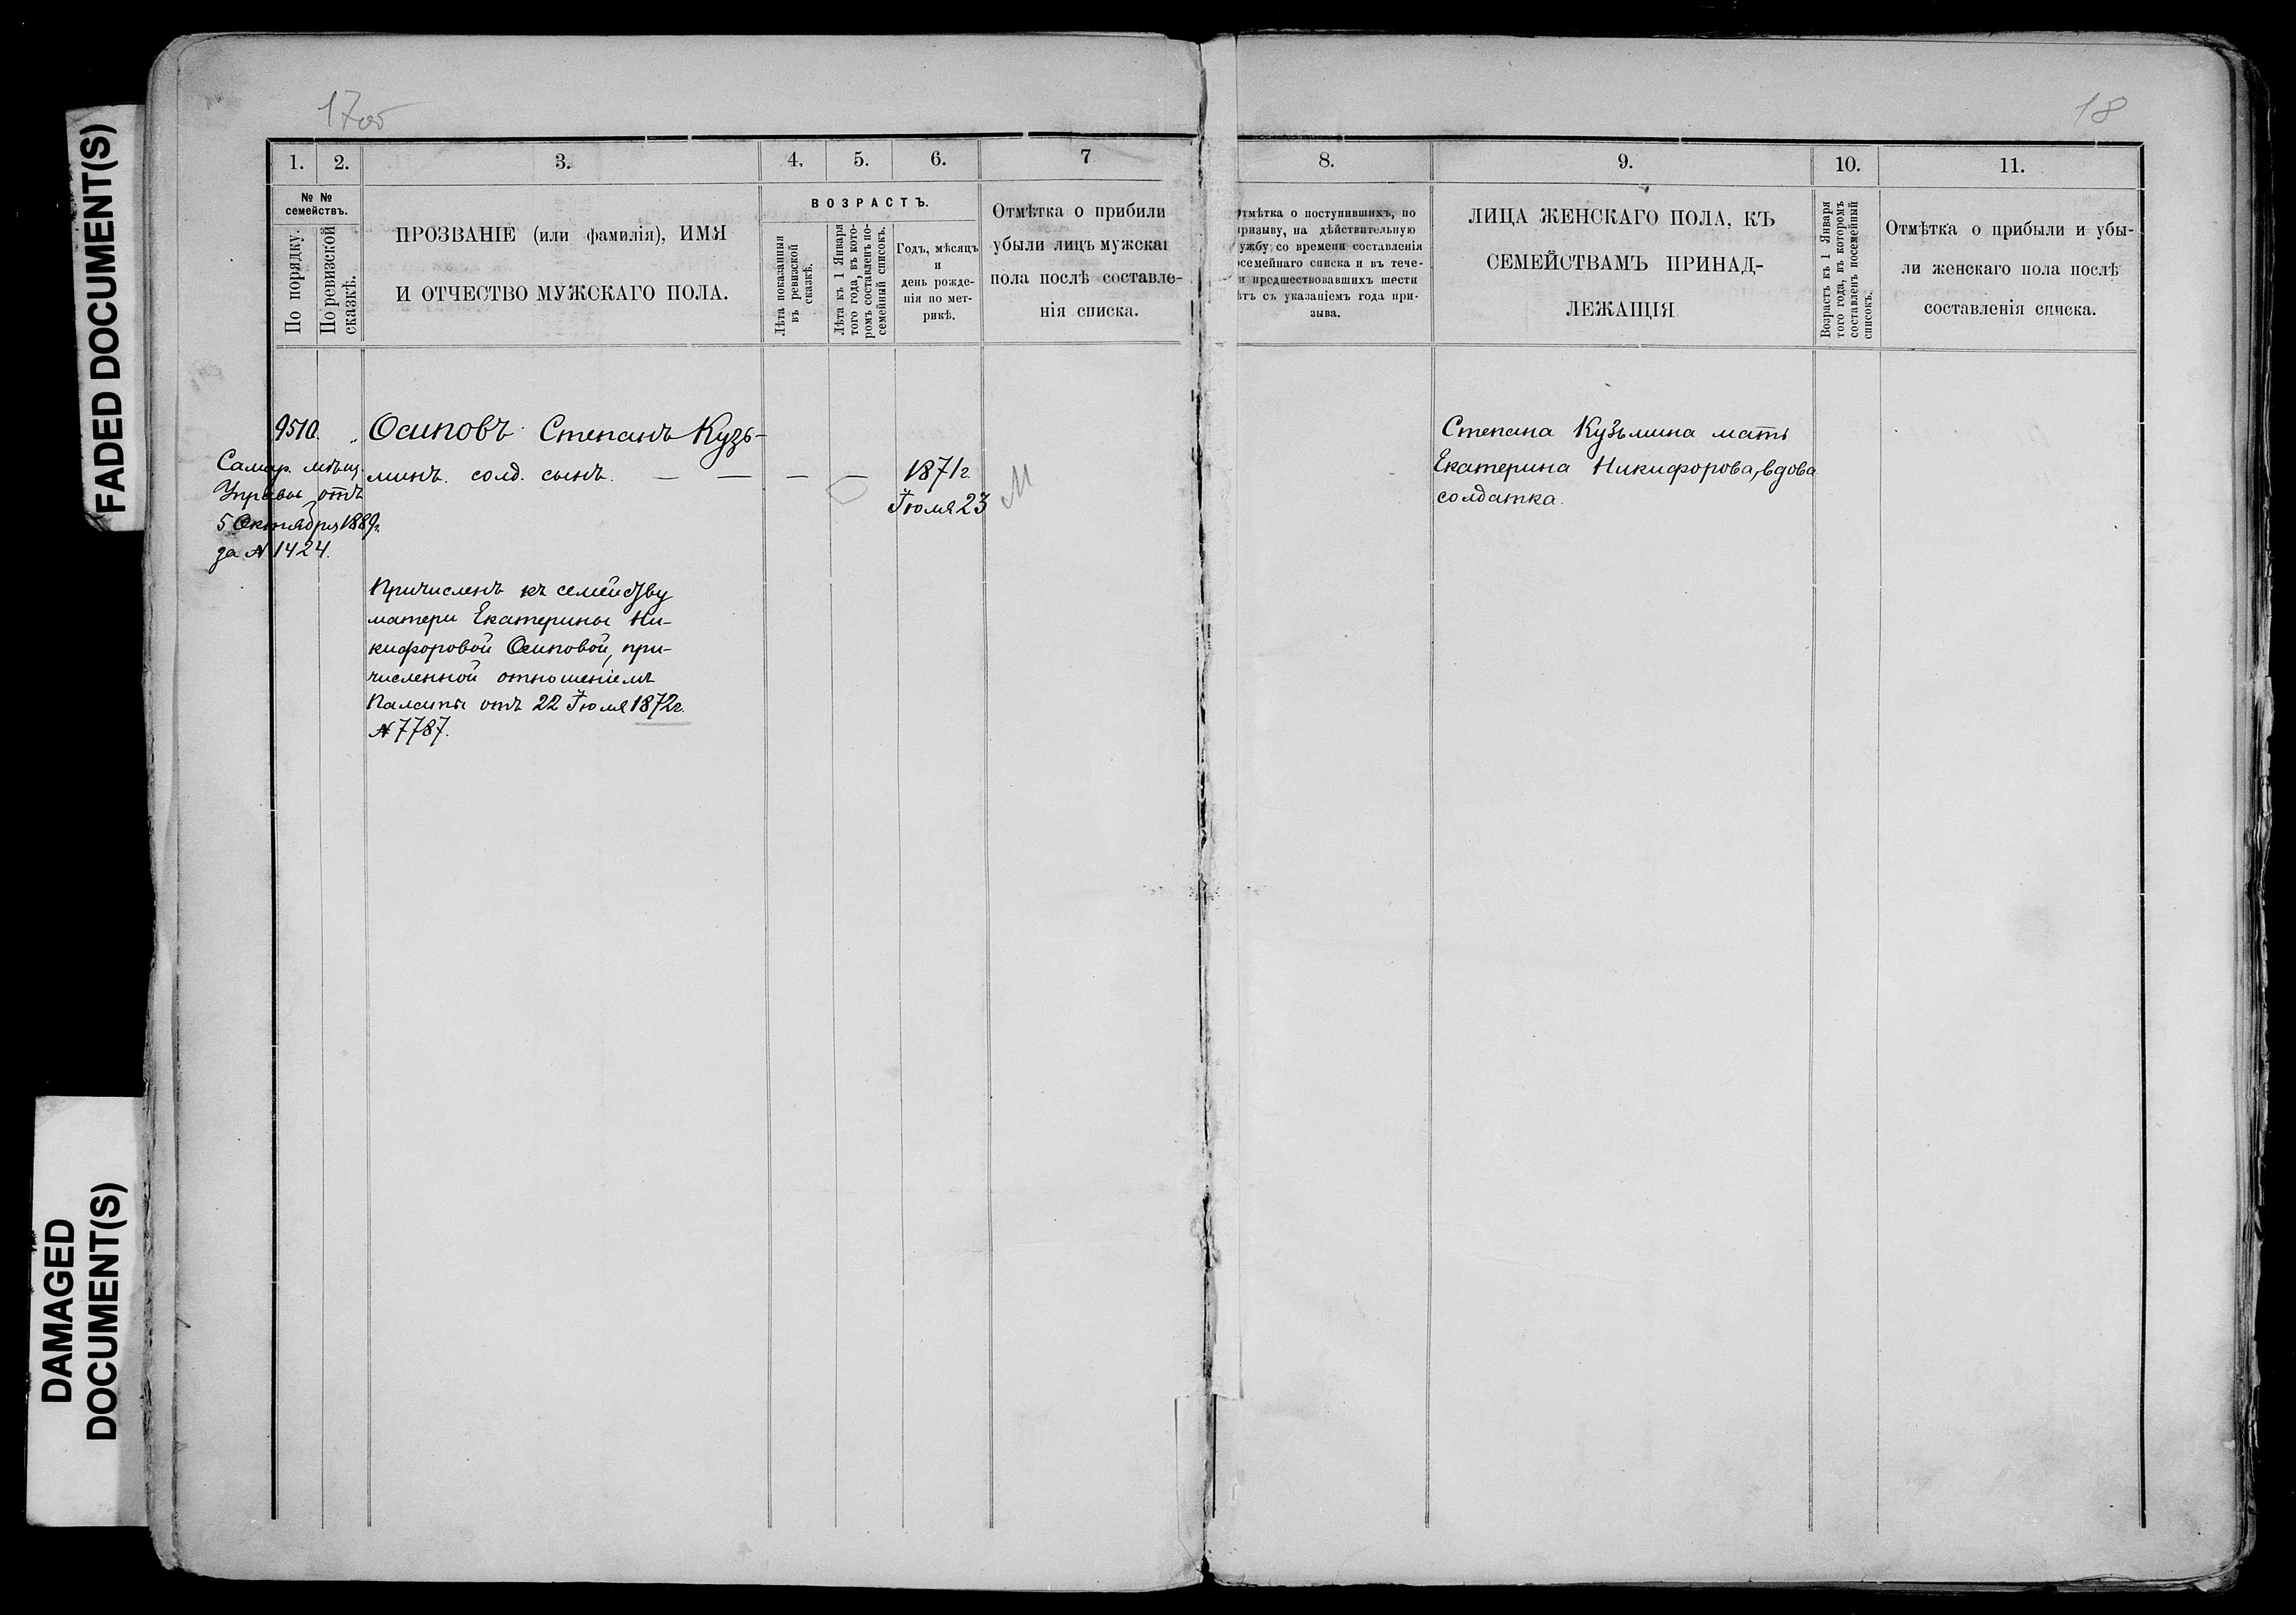 FADED DOCUMENT(S)
DAMAGED
DOCUMENT(S)
17об
18
1. 2. 3. 4. 5. 6. 7
№ №
семействъ.
По порядку.
По ревизской
сказкѣ.
ПРОЗВАНІЕ (или фамилія), ИМЯ
И ОТЧЕСТВО МУЖСКАГО ПОЛА.
ВОЗРАСТЪ.
Лѣта показанныя
въ ревизской
сказкѣ.
Лѣта къ 1 Января
того года, въ кото-
ромъ составленъ по-
семейный списокъ.
Годъ, мѣсяцъ
и
день рожде-
нія по мет-
рикѣ.
Отмѣтка о прибыли
убыли лицъ мужскаг
пола послѣ составле-
нія списка.
8. 9. 10. 11.
тмѣтка о поступившихъ, по
призыву, на дѣйствительную
ужбу со времени составленія
осемейнаго списка и въ тече-
и предшествовавшихъ шести
ѣтъ съ указаніемъ года при-
зыва.
ЛИЦА ЖЕНСКАГО ПОЛА, КЪ
СЕМЕЙСТВАМЪ ПРИНАД-
ЛЕЖАЩІЯ
Возрастъ къ 1 Января
того года, въ которомъ
составленъ посемейный
списокъ.
Отмѣтка о прибыли и убы-
ли женскаго пола послѣ
составленія списка.
9510. „ Осиповъ Степанъ Кузь-
минъ. солд. сынъ. — — — —
1871 г.
Іюля 23
М
Самар. мѣщ.
Управы отъ
5 Октября 1889 г.
за № 1424.
Причисленъ къ семейству
матери Екатерины Ни-
кифоровой Осиповой, при-
численной отношеніемъ
Палаты отъ 22 Іюля 1872 г.
№ 7787.
Степана Кузьмина мать
Екатерина Никифорова, вдова
солдатка.